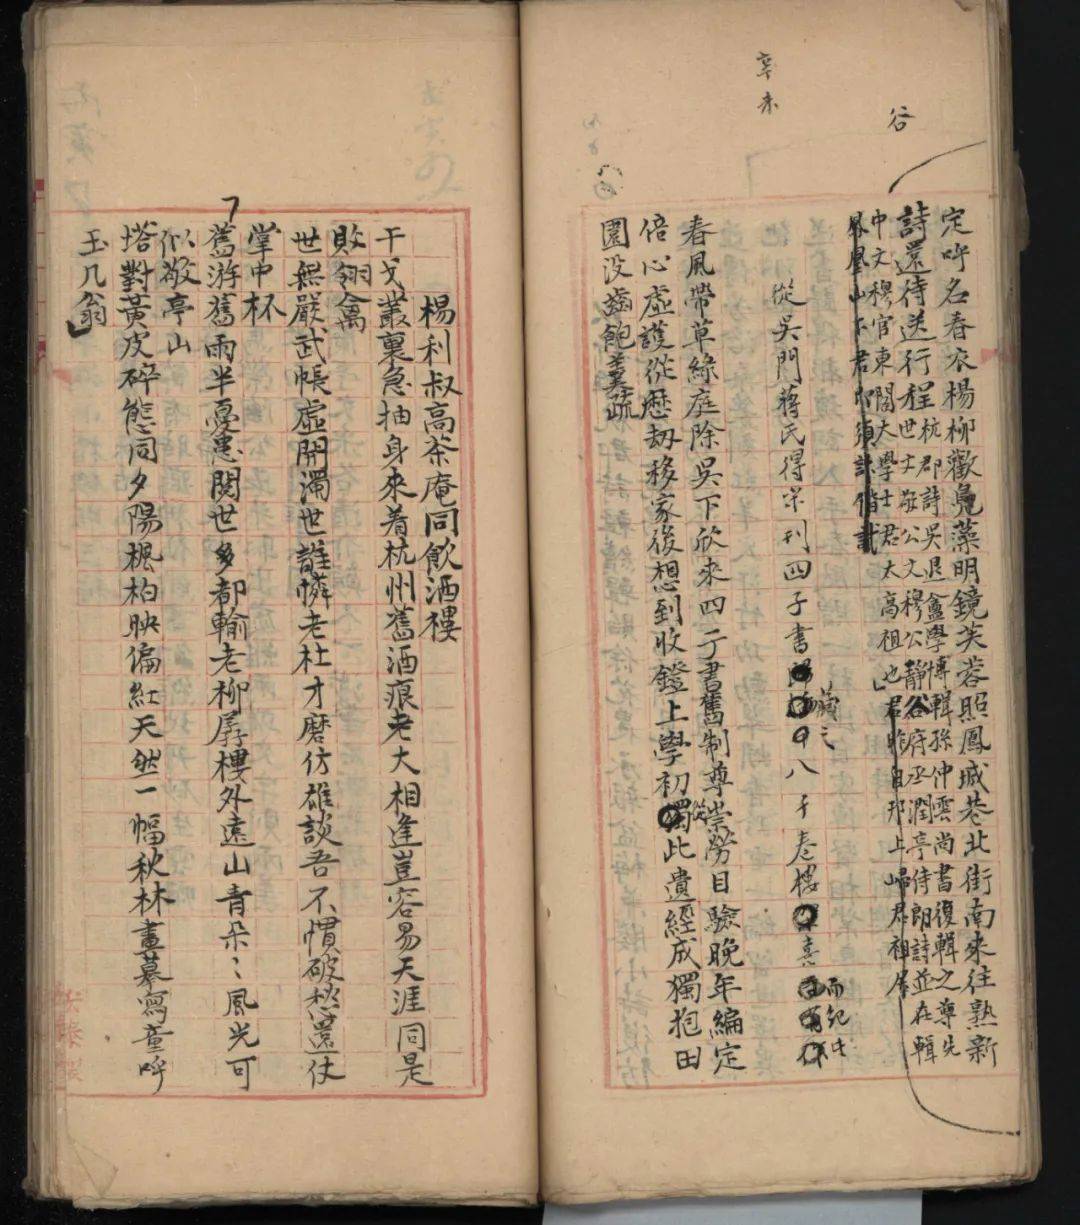 辛未
谷
定呼名春衣楊柳歡鳧藻明鏡芙蓉照鳳城巷北街南來往熟新
詩還待送行程
杭郡詩吳退盦學博輯孫仲雲尚書復輯之尊先
世士敬公文穆公靜谷府丞潤亭侍郎詩並在輯
中文穆官東閣大學士君太高祖也君昨自邗上歸君祖居
鳳凰山下君
從吳門蔣氏得宋刊四子書藏之八千卷樓喜而紀此
春風帶草綠庭除吳下欣來四子書舊制尊崇勞目驗晚年編定
倍心虛護從歷劫移家後想到收鐙上學初從此遺經成獨抱田
園没齒飽羹疏
楊利叔高茶庵同飲酒樓
干戈叢裏急抽身來着杭州舊酒痕老大相逢豈容易天涯同是
敗翎禽
世無嚴武帳虛開濁世誰憐老杜才磨仿雄談吾不慣破愁還仗
掌中杯
舊游舊雨半憂患閱世多都輸老柳孱樓外遠山青朵〻風光可
似敬亭山
塔對黃皮碎態同夕陽楓柏映偏紅天然一幅秋林畫摹寫童呼
玉几翁